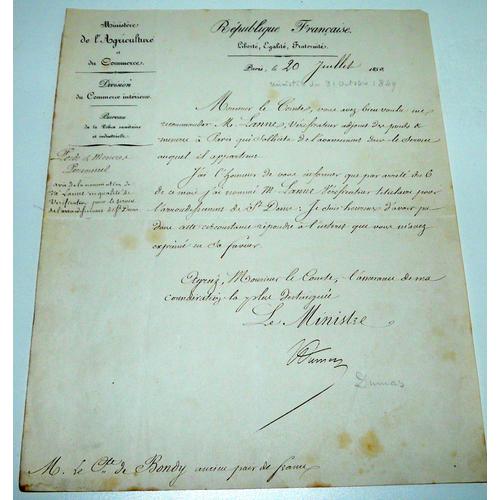 Ministère
de l'Agriculture
et
du Commerce.
Division
du Commerce intérieur.
Bureau
de la Police sanitaire
et industrielle.
Poids & Mesures
Personnel
avis de la nomination de
M. Lanne en qualité de
Vérificateur pour le service
de l'arrondissement de St Denis
République Française.
Liberté, Egalité, Fraternité.
Paris, le 20 Juillet 1850.
ministre du 31 Octobre 1849
Monsieur le Comte, vous avez bien voulu me
recommander M. Lanne, Vérificateur adjoint des poids &
mesures à Paris qui sollicite de l'avancement dans le service
auquel il appartient.
J'ai l'honneur de vous informer que par arrêté du 6
de ce mois j'ai nommé M. Lanne Vérificateur titulaire pour
l'arrondissement de St Denis. Je suis heureux d'avoir pu
dans cette circonstance répondre à l'intérêt que vous m'avez
exprimé en sa faveur.
Agréez, Monsieur le Comte, l'assurance de ma
considération la plus distinguée
Le Ministre
Dumas
Dumas
M. Le Cte de Bondy ancien pair de france